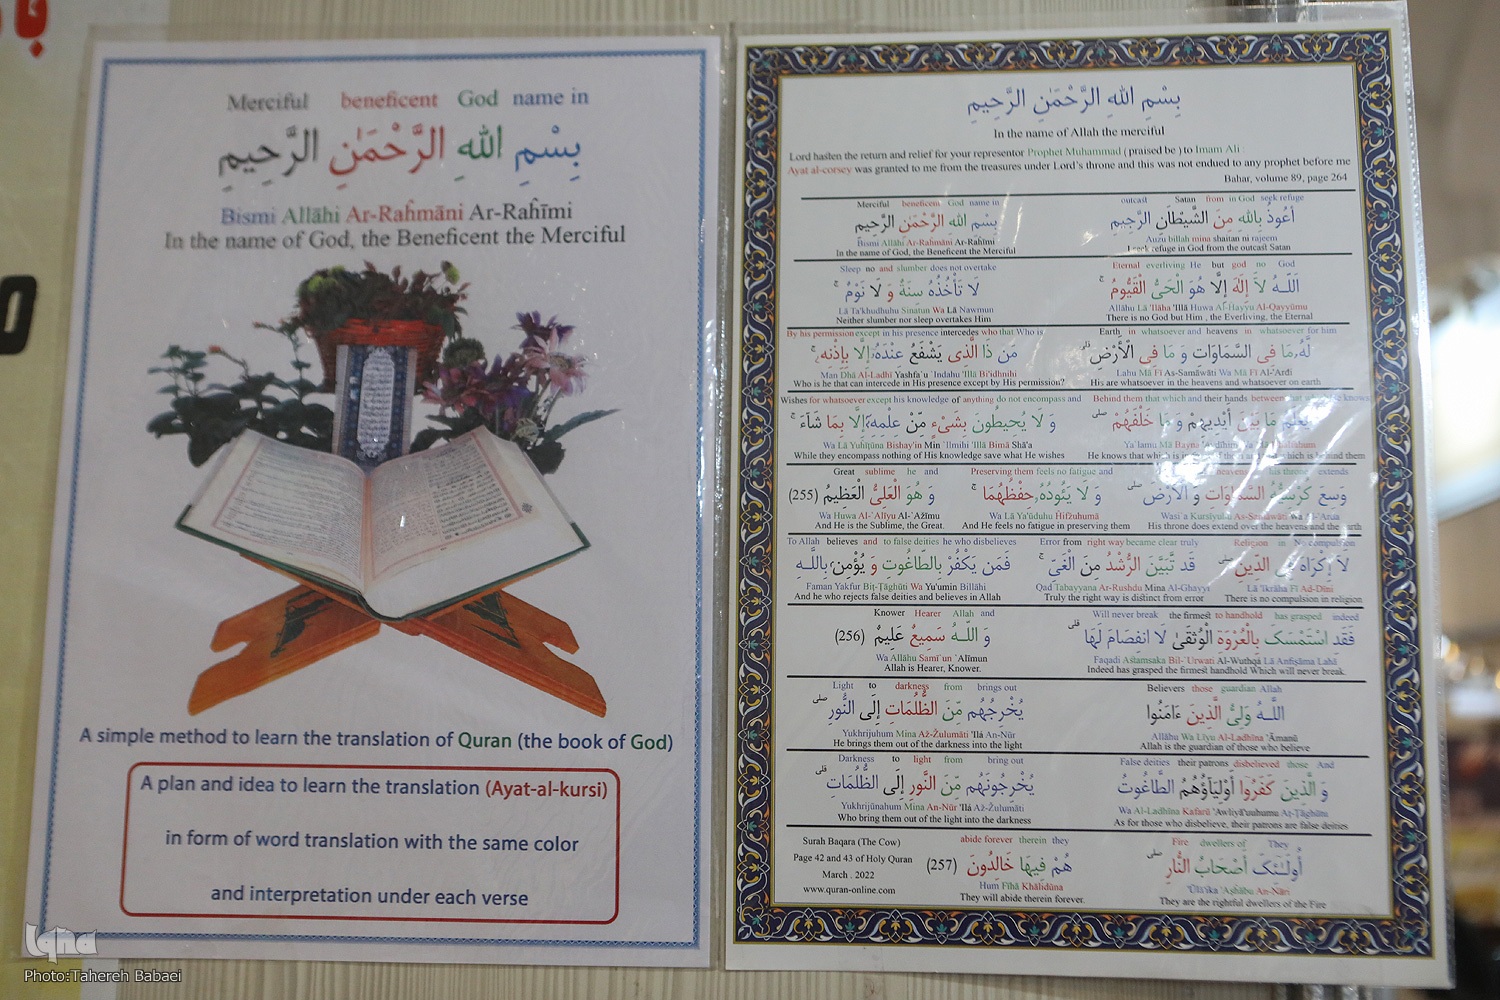 Merciful beneficent God name in
بِسْمِ اللهِ الرَّحْمٰنِ الرَّحِيمِ
Bismi Allāhi Ar-Raĥmāni Ar-Raĥīmi
In the name of God, the Beneficent the Merciful
A simple method to learn the translation of Quran (the book of God)
A plan and idea to learn the translation (Ayat-al-kursi)
in form of word translation with the same color
and interpretation under each verse
بِسْمِ اللهِ الرَّحْمٰنِ الرَّحِيمِ
In the name of Allah the merciful
Lord hasten the return and relief for your representor Prophet Muhammad ( praised be ) to Imam Ali :
Ayat al-corsey was granted to me from the treasures under Lord's throne and this was not endued to any prophet before me
Bahar, volume 89, page 264
outcast Satan from in God seek refuge
أعُوذُ بِاللهِ مِنَ الشَّيْطَانِ الرَّجِيمِ
Auzu billah mina shaitan ni rajeem
I seek refuge in God from the outcast Satan
Merciful beneficent God name in
بِسْمِ اللهِ الرَّحْمٰنِ الرَّحِيمِ
Bismi Allāhi Ar-Raĥmāni Ar-Raĥīmi
In the name of God, the Beneficent the Merciful
Eternal everliving He but god no God
اَللَّـهُ لَا إِلَهَ إِلَّا هُوَ الْحَيُّ الْقَيُّومُ ۚ
Allāhu Lā 'Ilāha 'Illā Huwa Al-Ĥayyu Al-Qayyūmu
There is no God but Him , the Everliving, the Eternal
Sleep no and slumber does not overtake
لَا تَأْخُذُهُ سِنَةٌ وَ لَا نَوْمٌ ۚ
Lā Ta'khudhuhu Sinatun Wa Lā Nawmun
Neither slumber nor sleep overtakes Him
Earth in whatsoever and heavens in whatsoever for him
لَّهُ مَا فِي السَّمَاوَاتِ وَ مَا فِي الْأَرْضِ ۗ
Lahu Mā Fī As-Samāwāti Wa Mā Fī Al-'Arđi
His are whatsoever in the heavens and whatsoever on earth
By his permission except in his presence intercedes who that Who is
مَن ذَا الَّذِی يَشْفَعُ عِنْدَهُ إِلَّا بِإِذْنِهِ ۚ
Man Dhā Al-Ladhī Yashfa`u `Indahu 'Illā Bi'idhnihi
Who is he that can intercede in His presence except by His permission?
Behind them that which and their hands between that which he knows
يَعْلَمُ مَا بَيْنَ أَيْدِيهِمْ وَ مَا خَلْفَهُمْ ۖ
Ya`lamu Mā Bayna
He knows that which is in which is behind them
Wishes for whatsoever except his knowledge of anything do not encompass and
وَ لَا يُحِيطُونَ بِشَيْءٍ مِّنْ عِلْمِهِ إِلَّا بِمَا شَاءَ ۚ
Wa Lā Yuĥīţūna Bishay'in Min `Ilmihi 'Illā Bimā Shā'a
While they encompass nothing of His knowledge save what He wishes
heavens his throne extends
وَسِعَ كُرْسِيُّهُ السَّمَاوَاتِ وَ الْأَرْضَ ۖ
Wasi`a Kursīyuhu As-Samāwāti Wa Al-'Arđa
His throne does extend over the heavens and the earth
Preserving them feels no fatigue and
وَ لَا يَئُودُهُ حِفْظُهُمَا ۚ
Wa Lā Ya'ūduhu Ĥifžuhumā
And He feels no fatigue in preserving them
Great sublime he and
وَ هُوَ الْعَلِيُّ الْعَظِيمُ (255)
Wa Huwa Al-`Alīyu Al-`Ažīmu
And He is the Sublime, the Great.
Religion in no compulsion
لَا إِكْرَاهَ فِی الدِّينِ ۖ
Lā 'Ikrāha Fī Ad-Dīni
There is no compulsion in religion
Error from right way became clear truly
قَد تَّبَيَّنَ الرُّشْدُ مِنَ الْغَيِّ ۚ
Qad Tabayyana Ar-Rushdu Mina Al-Ghayyi
Truly the right way is distinct from error
To Allah believes and to false deities he disbelieves
فَمَن يَكْفُرْ بِالطَّاغُوتِ وَ يُؤْمِن بِاللَّـهِ
Faman Yakfur Biţ-Ţāghūti Wa Yu'umin Billāhi
And he who rejects false deities and believes in Allah
Will never break the firmest to handhold has grasped indeed
فَقَدِ اسْتَمْسَكَ بِالْعُرْوَةِ الْوُثْقَىٰ لَا انفِصَامَ لَهَا ۗ
Faqadi Astamsaka Bil-`Urwati Al-Wuthqá Lā Anfişāma Lahā
Indeed has grasped the firmest handhold Which will never break
Knower Hearer Allah and
وَ اللَّـهُ سَمِيعٌ عَلِيمٌ (256)
Wa Allāhu Samī`un `Alīmun
Allah is Hearer, Knower.
Believers those guardian Allah
اللَّـهُ وَلِيُّ الَّذِينَ ءَامَنُوا
Allāhu Wa Līyu Al-Ladhīna 'Āmanū
Allah is the guardian of those who believe
Light to darkness from brings out
يُخْرِجُهُم مِّنَ الظُّلُمَاتِ إِلَى النُّورِ ۖ
Yukhrijuhum Mina Až-Žulumāti 'Ilá An-Nūr
He brings them out of the darkness into the light
False deities their patrons disbelieved those And
وَ الَّذِينَ كَفَرُوا أَوْلِيَاؤُهُمُ الطَّاغُوتُ
Wa Al-Ladhīna Kafarū 'Awliyā'uuhumu Aţ-Ţāghūtu
As for those who disbelieve, their patrons are false deities
Darkness to light from bring out
يُخْرِجُونَهُم مِّنَ النُّورِ إِلَى الظُّلُمَاتِ ۗ
Yukhrijūnahum Mina An-Nūr 'Ilá Až-Žulumāti
Who bring them out of the light into the darkness
Fire dwellers of They
أُولَـٰئِكَ أَصْحَابُ النَّارِ ۖ
'Ūlā'ika 'Aşĥābu An-Nāri
They are the rightful dwellers of the Fire
abide forever therein they
هُمْ فِيهَا خَالِدُونَ (257)
Hum Fīhā Khālidūna
They will abide therein forever.
Surah Baqara (The Cow)
Page 42 and 43 of Holy Quran
March . 2022
www.quran-online.com
Iqna
Photo:Tahereh Babaei